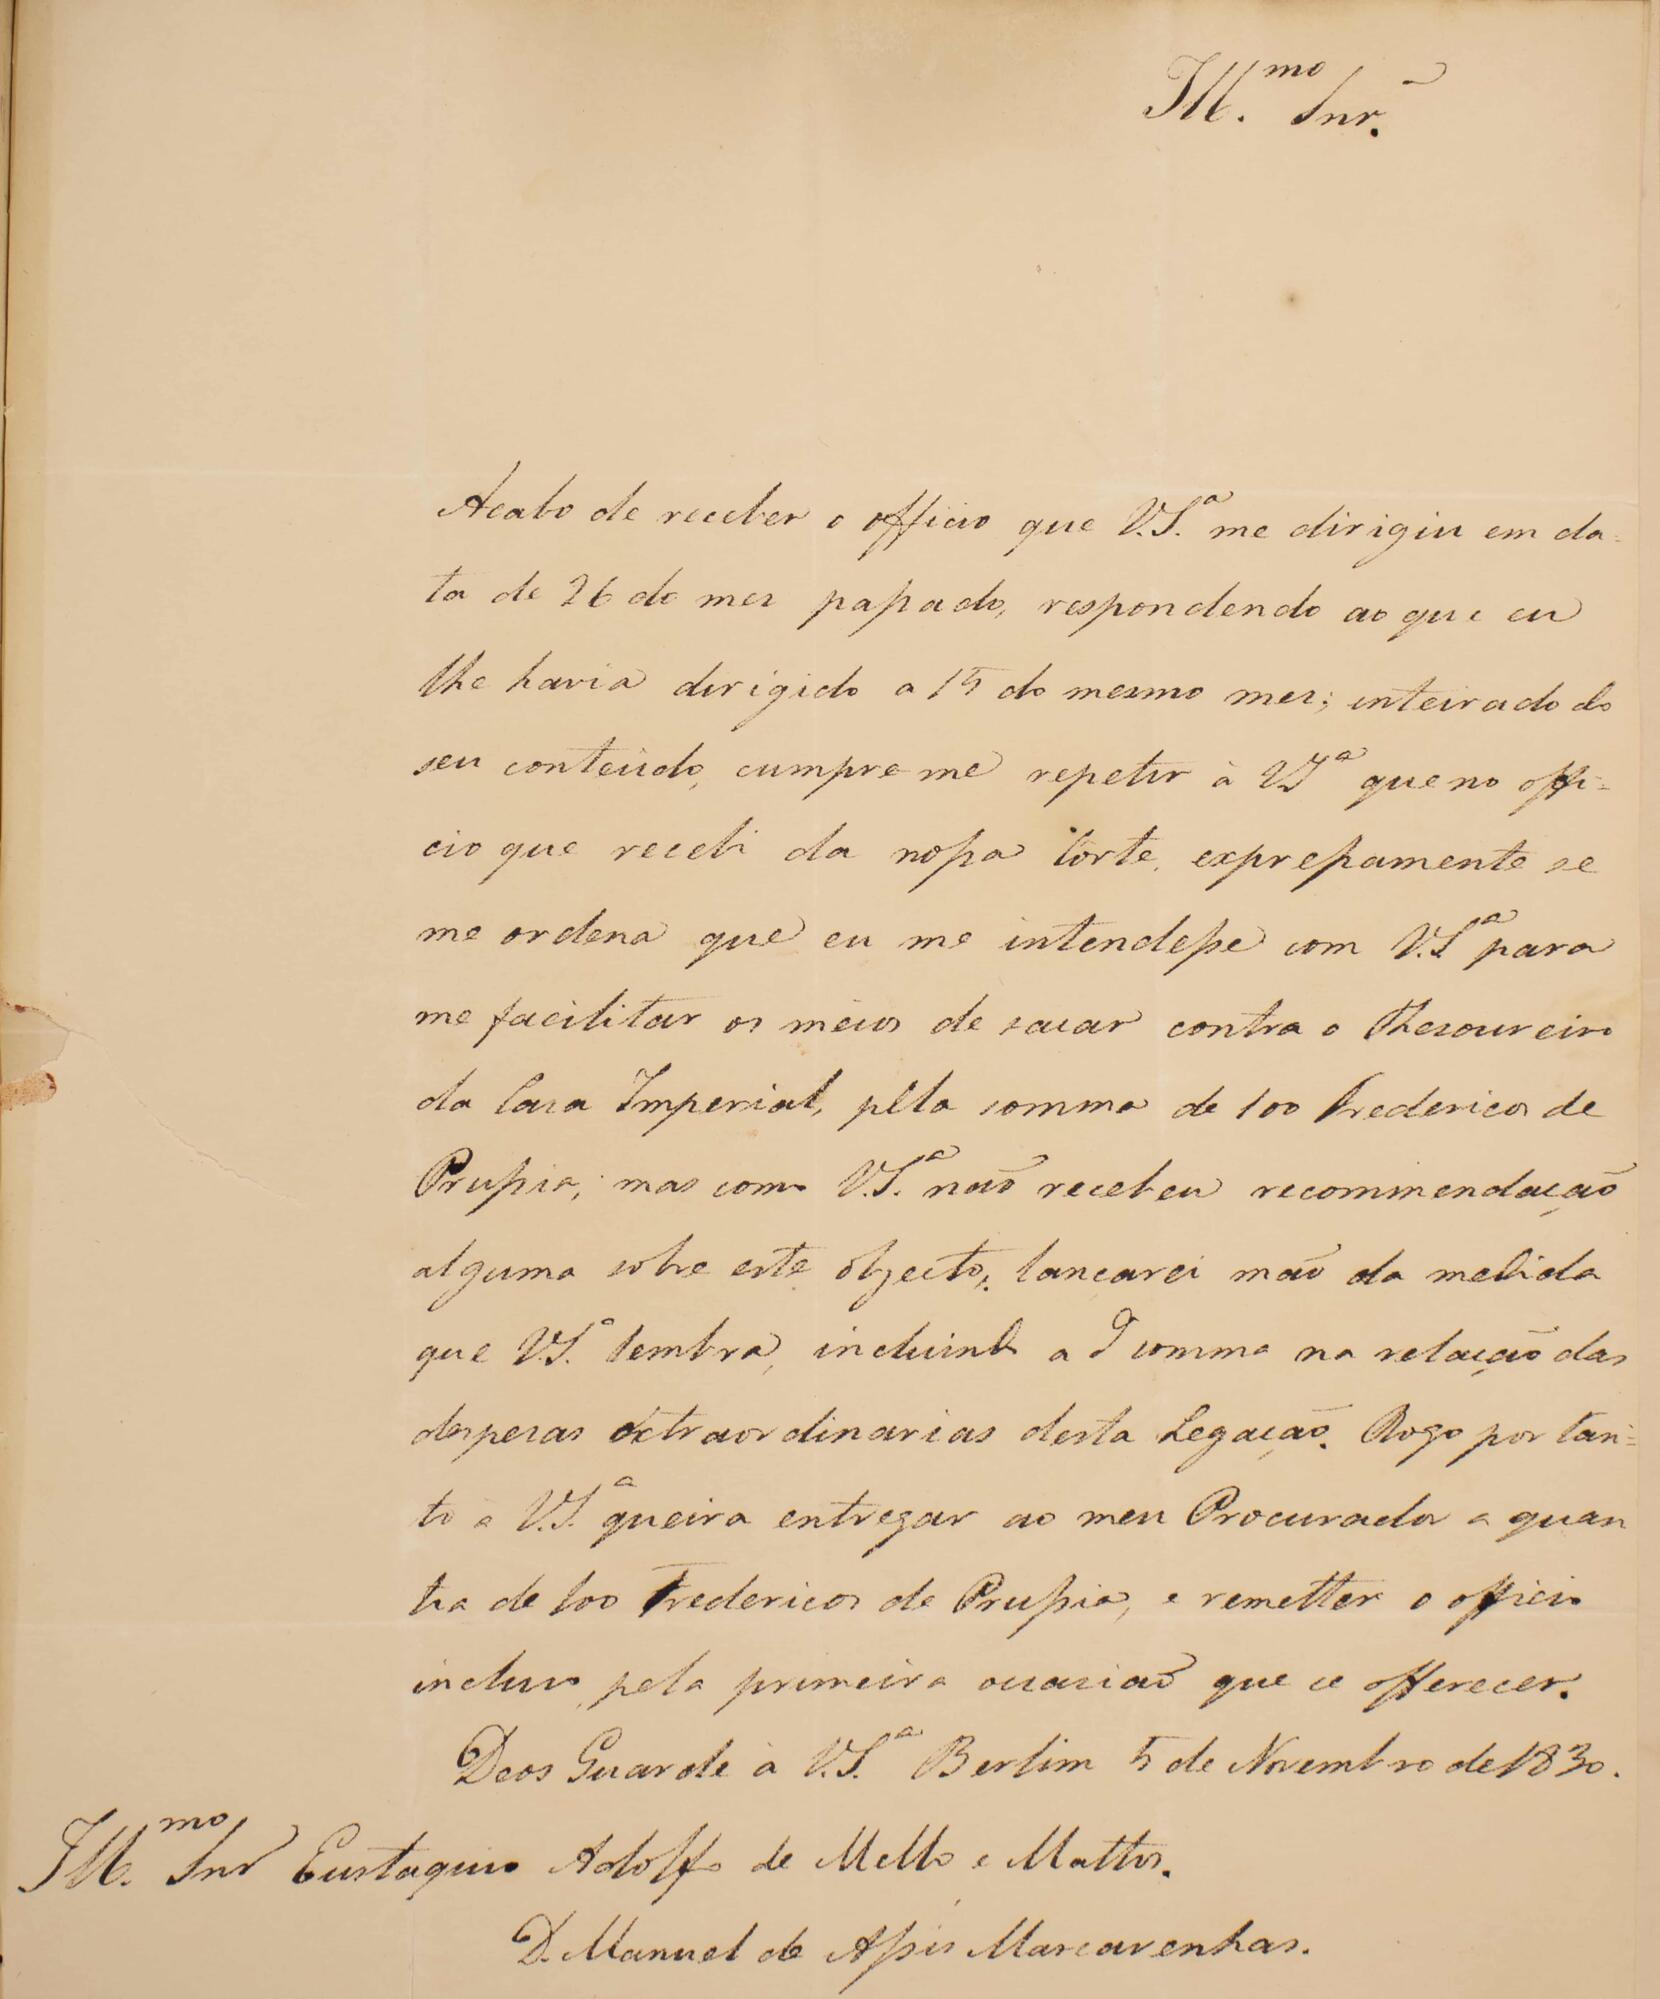 Ill.mo Snr.
Acabo de receber o officio que V.S.ª me dirigiu em da=
ta de 26 do mez passado, respondendo ao que eu
lhe havia dirigido a 15 do mesmo mez; inteirado do
seu conteúdo, cumpre me repetir à V.Sª que no offi=
cio que recebi da nossa Côrte, expressamente se
me ordena que eu me intendesse com V.Sª para
me facilitar os meios de sacar contra o Thesoureiro
da Casa Imperial, pela somma de 100 Fredericos de
Prussia; mas como V.S.ª não recebeu recommendação
alguma sobre este objecto, lançarei mão da medida
que V.S.ª lembra, incluindo a somma na relação das
despezas extraordinarias desta Legação. Rogo por tan=
to à V.S.ª queira entregar ao meu Procurador a quan
tia de 100 Fredericos de Prussia, e remetter o officio
incluso pela primeira occasião que se offerecer.
Deos Guarde à V.S.ª Berlim 5 de Novembro de 1830.
Ill.mo Snr Eustaquio Adolfo de Mello e Mattos.
D. Manuel de Assis Mascarenhas.